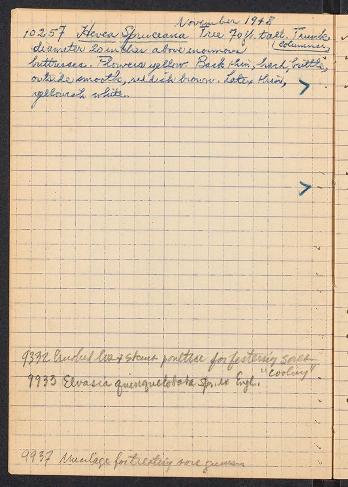 November 1948
10257 Hevea Spruceana Tree 70 ft. tall. Trunk
(columnar,
diameter 20 inches above enormous
buttresses. Flowers yellow Bark thin, hard, brittle,
outside smooth, reddish brown. Latex thin,
yellowish white.
9332 Crushed lvs & stems poultice for festering sores
"cooling"
9933 Elvasia quinqueloba Spr. ex Engl.
9937 Mucilage for treating sore gums